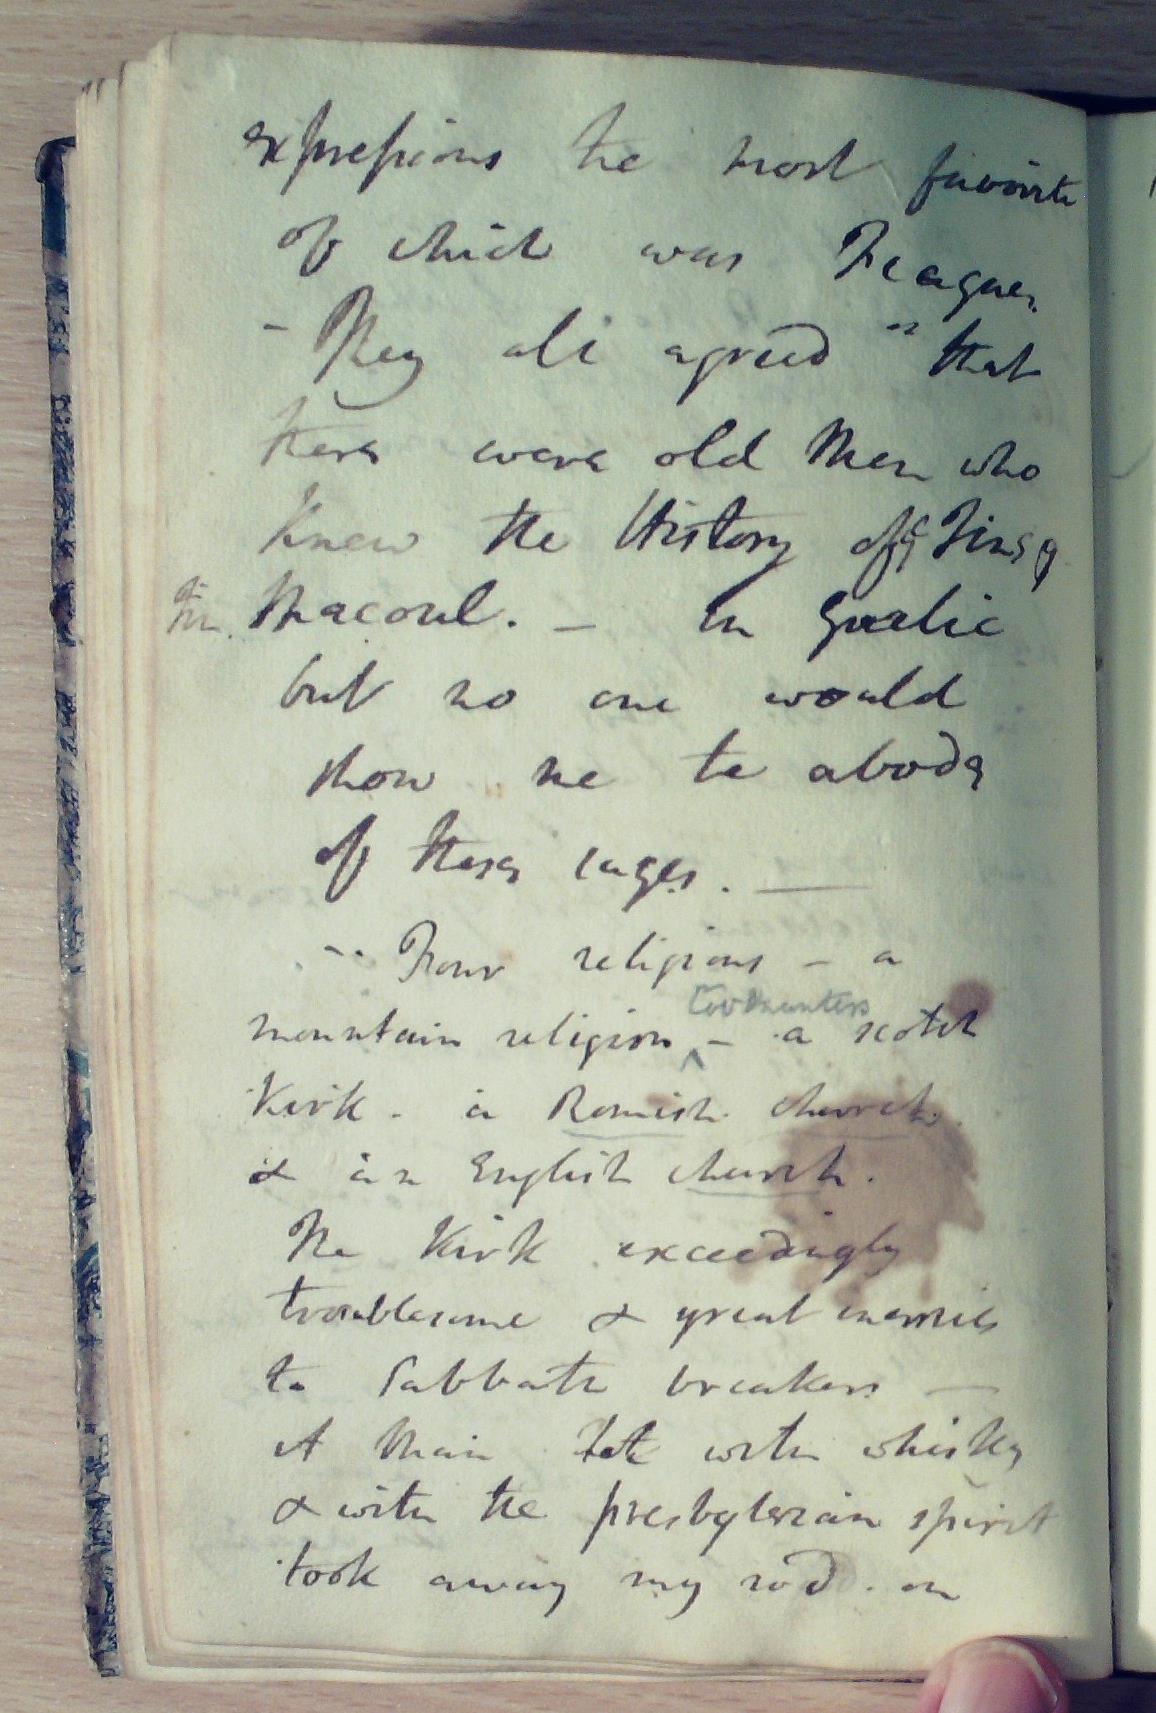 expressions the most favorite
of which was Teagues.
- They all agreed " that
there were old Men who
knew the History of
Macoul. - in Gaelic
but no one would
show me the abode
of these sages. —
-- Four religions - a
mountain religion - a scotch
Kirk - a Romish church
& an English church.
The Kirk exceedingly
troublesome & great enemies
to Sabbath breakers —
A Man with whisky
& with the presbyterian spirit
took away my rod. on